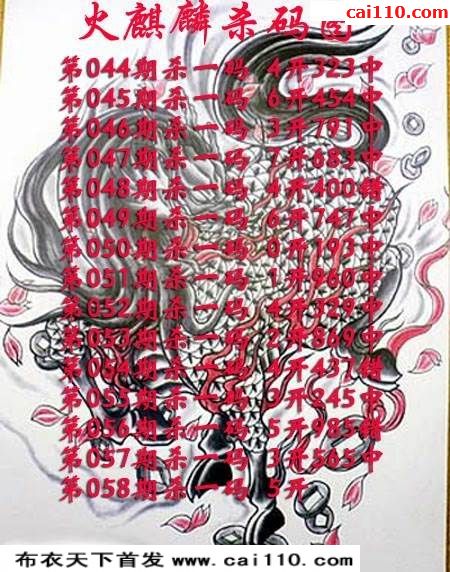 cai110.com
火麒麟杀码
第044期杀一码 4开323中
第045期杀一码 6开454中
第046期杀一码 3开791中
第047期杀一码 7开683中
第048期杀一码 4开400错
第049期杀一码 6开747中
第050期杀一码 0开193中
第051期杀一码 1开960中
第052期杀一码 4开329中
第053期杀一码 2开869中
第054期杀一码 4开437错
第055期杀一码 3开845中
第056期杀一码 5开985错
第057期杀一码 3开565中
第058期杀一码 5开
布衣天下首发 www.cai110.com